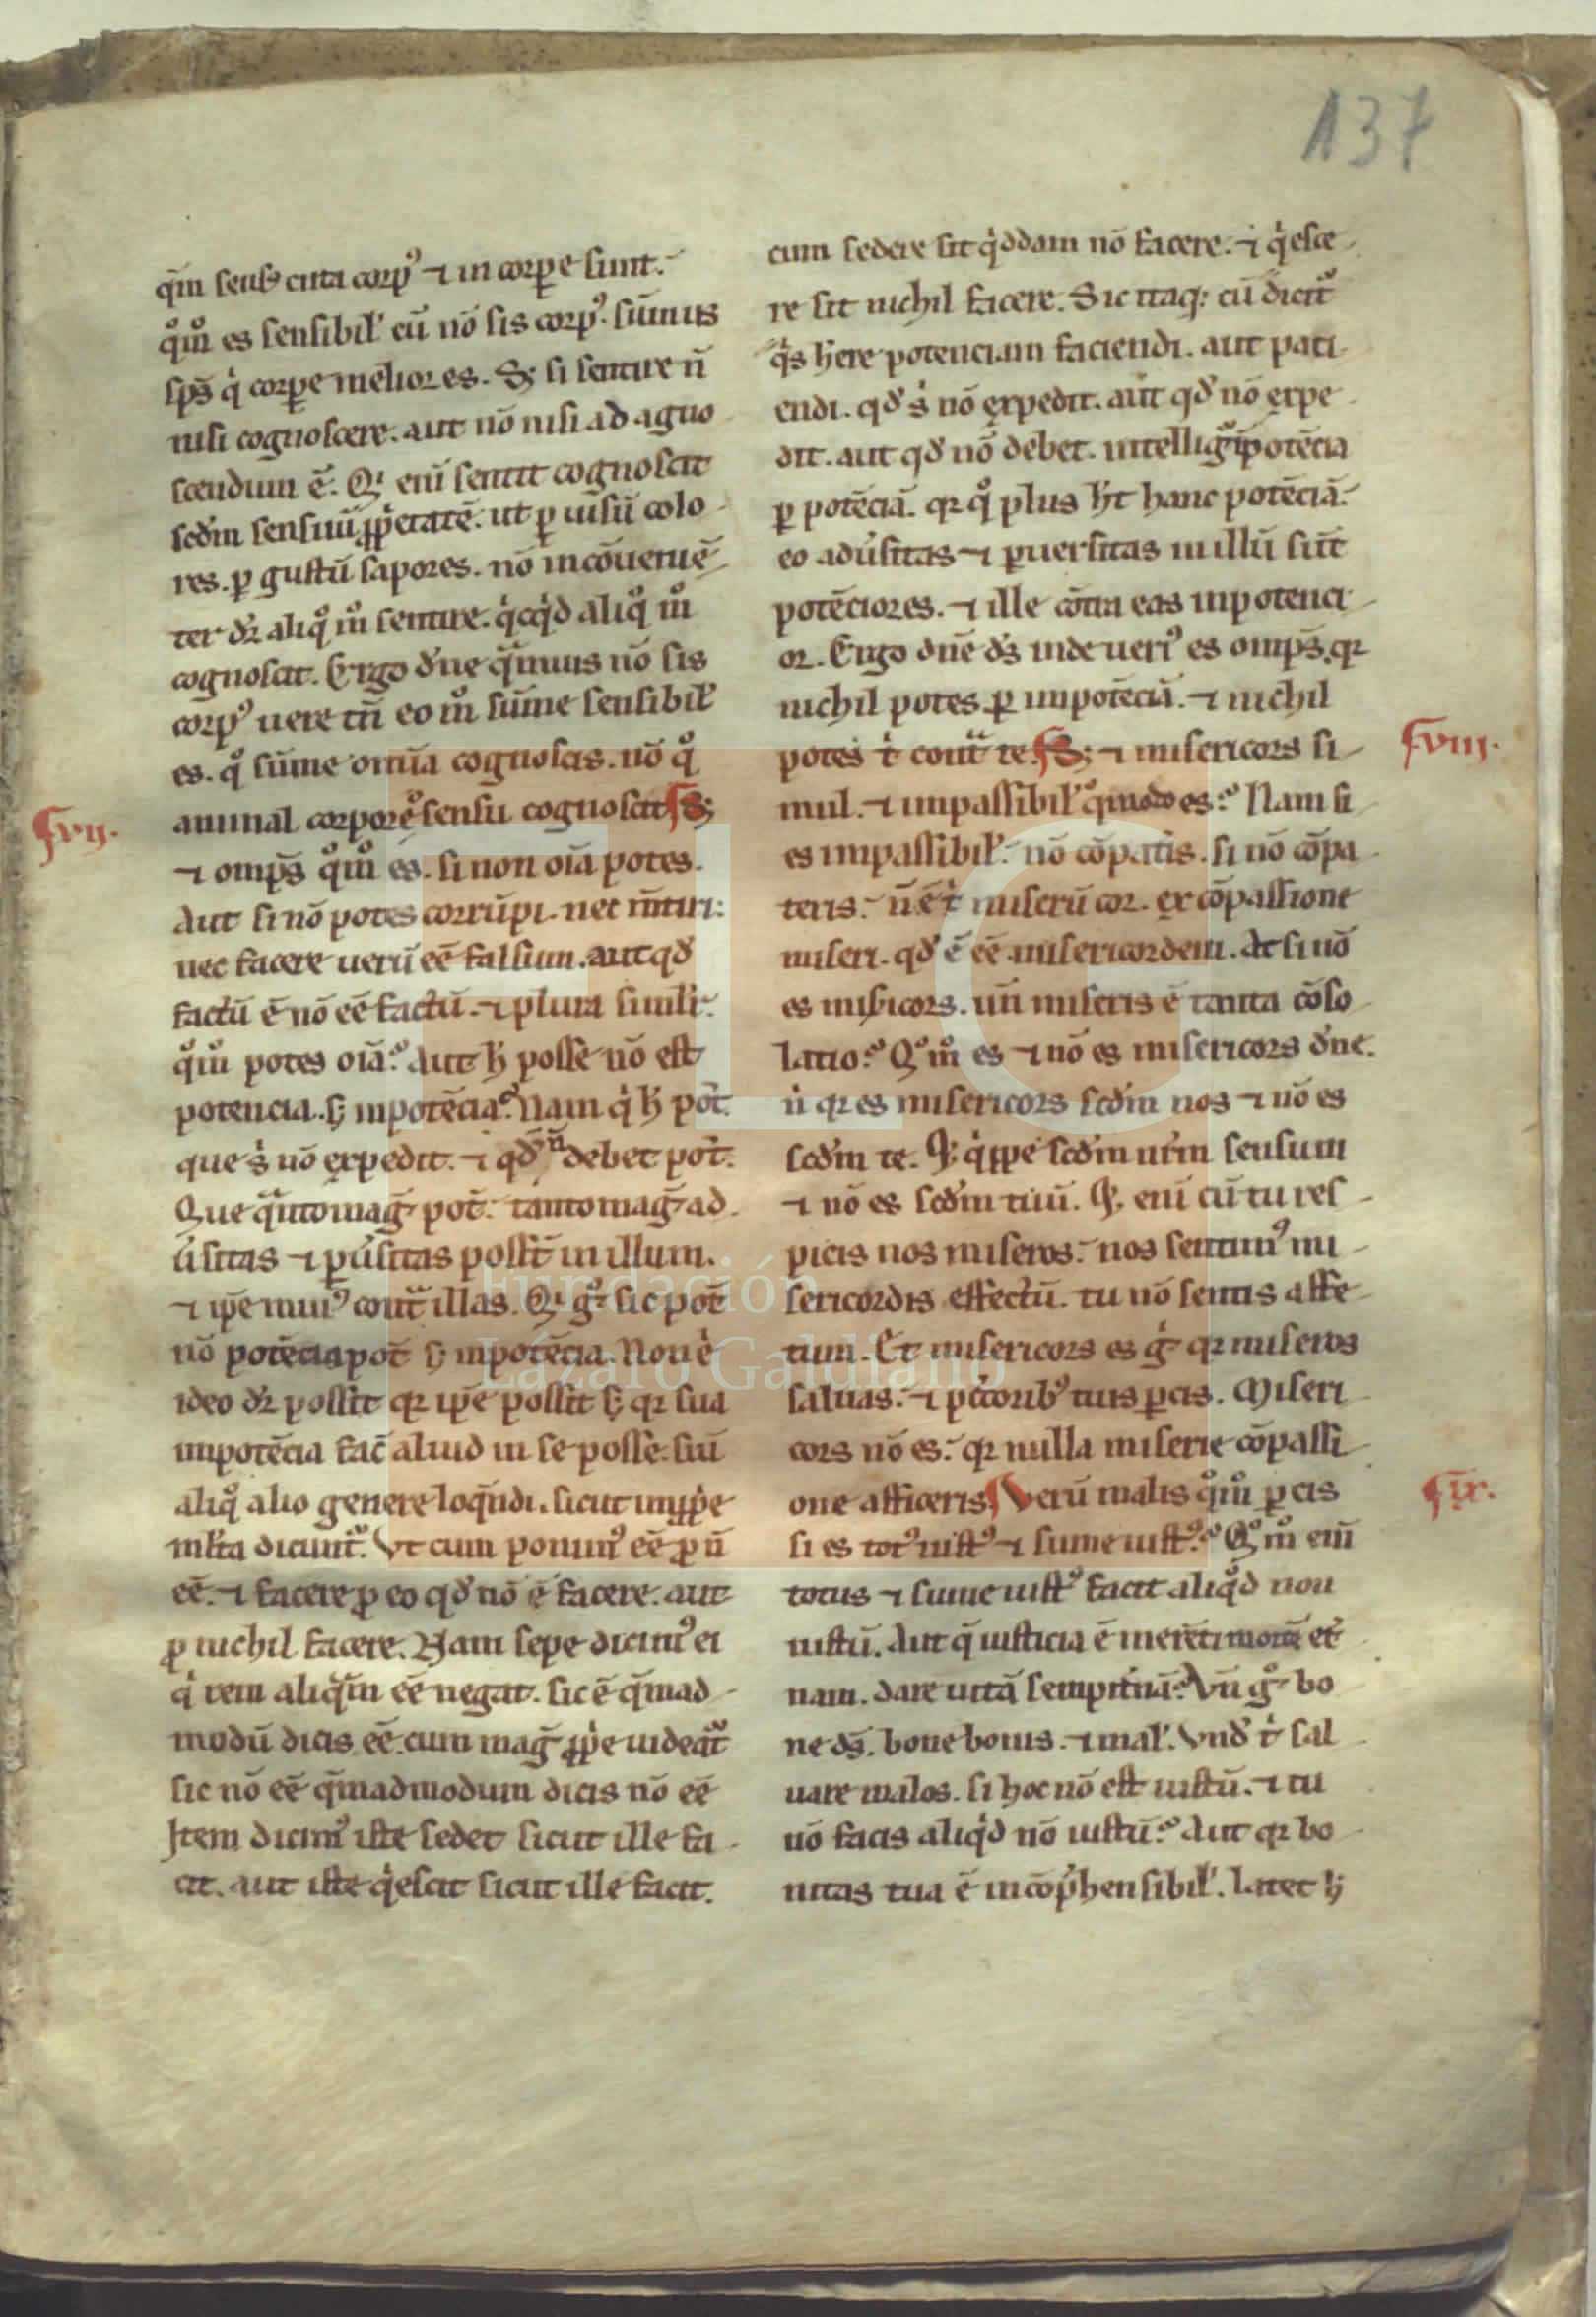 137
qm̄ sensꝰ circa corpꝰ ⁊ in corpore sunt.
qͦm̊ es sensibil̕ cū nō sis corpꝰ. sūmus
sps̄ qͥ corpꝑe melior es. Sꝫ si sentire n̄
nisi cognoscere. aut nō nisi ad agno
scendum ē. Qͥ eni sentit cognoscit
scd̄m sensuū ꝓpͥetatē. ut ꝑ uisū colo
res. ꝑ gustū sapores. nō incōueniē
ter dr̄ aliqͦ m̊ sentire. qͥcqͥd aliqͦ m̊
cognoscit. Ergo dn̄e qͣmuis nō sis
corpꝰ uere tn̄ eo m̊ sūme sensibil̕
es. qͦ sūme omīa cognoscis. nō qͦ
animal corporeͦ sensu cognoscit ¶ Sꝫ
¶ vij.
⁊ omps̄ qͦm̊ es. si non oīa potes.
Aut si nō potes corrūpi. nec m̄tiri:
nec facere uerū eē falsum. aut qd̕
factū ē nō eē factū. ⁊ plura simil̕r:
qͦm̊ potes oīa? Aut h̕ posse nō est
potencia. sꝫ inpotēcia? Nam qͥ h̕ pōt.
que sͥ nō expedit. ⁊ qd̕ n̄ debet pōt.
Que qͣnto magͣ pōt. tanto magͣ ad
ūsitas ⁊ ꝑūsitas possūt in illum.
⁊ ip̄e minꝰ contͣ illas. Qͥ gͦ sic pōt
nō potēcia pōt sꝫ inpotēcia. Non .n.
ideo dr̄ possit qꝛ ip̄e possit sꝫ qꝛ sua
impotēcia fac̄ aliud in se posse. siū
aliqͦ alio genere loqͣndi. sicut inꝓpͥe
ml̕ta dicunt̕. Vt cum ponimꝰ eē ꝓ n̄
eē. ⁊ facere ꝓ eo qd̕ nō ē facere. aut
ꝓ nichil facere. Nam sepe dicimꝰ ei
qͥ rem aliqͣm eē negat. sic ē qͣmad
modū dicis eē. cum magͣ ꝓpͥe uideat̕
sic nō eē qͣmadmodum dicis nō eē
Item dicimꝰ iste sedet sicut ille fa
cit. aut iste qͥescit sicut ille facit.
cum sedere sit qͥddam nō facere. ⁊ qͥesce
re sit nichil facere. Sic itaqꝫ cū dicit̕
qͥs h̕ere potenciam faciendi. aut pati
endi. qd̕ sͥ nō expedit. aut qd̕ nō expe
dit. aut qd̕ nō debet. intelligit̕ īpotēcia
ꝑ potēciā. qꝛ qͦ plus h̕t hanc potēciā.
eo adūsitas ⁊ ꝑuersitas in illū sūt
potēciores. ⁊ ille cōtra eas inpotenci
or. Ergo dn̄e ds̄ inde ueriꝰ es omps̄. qꝛ
nichil potes ꝑ impotēciā. ⁊ nichil
potest̄ contͣ te. ¶ Sꝫ ⁊ misericors si
¶ viij.
mul. ⁊ impassibil̕ qͦmodo es? Nam si
es impassibil̕. nō cōpateris. si nō cōpa
teris. n̄ ē tͥ miserū cor. ex cōpassione
miseri. qd̕ ē eē misericordem. At si nō
es mis̕icors. un̄ miseris ē tanta cōso
latio? Qͦ m̊ es ⁊ nō es misericors dn̄e.
n̄ qꝛ es misericors scd̄m nos ⁊ nō es
scd̄m te. Es qͥppe scd̄m nr̄m sensum
⁊ nō es scd̄m tuū. Et enī cū tu res
picis nos miseros. nos sentimꝰ mi
sericordis effectū. tu nō sentis affe
tum. Et misericors es gͥ qꝛ miseros
saluas. ⁊ pctōribꝰ tuis ꝑcis. Miseri
cors nō es. qꝛ nulla miserie cōpassi
one afficeris ¶ Verū malis qͦm̊ ꝑcis
¶ ix.
si es totꝰ iustꝰ ⁊ sume iustꝰ? Qͦ m̊ enī
totus ⁊ sume iustꝰ facit aliqͥd non
iustū. Aut q̄ iusticia ē merēti mortē et̕
nam. dare uitā sempitnā? Vn̄ gͦ bo
ne ds̄. bone bonis. ⁊ mal̕. vnd̕ tͥ sal
uare malos. si hoc nō est iustū. ⁊ tu
nō facis aliqͥd nō iustū? Aut qꝛ bo
nitas tua ē incōpͥhensibil̕. latet h̕